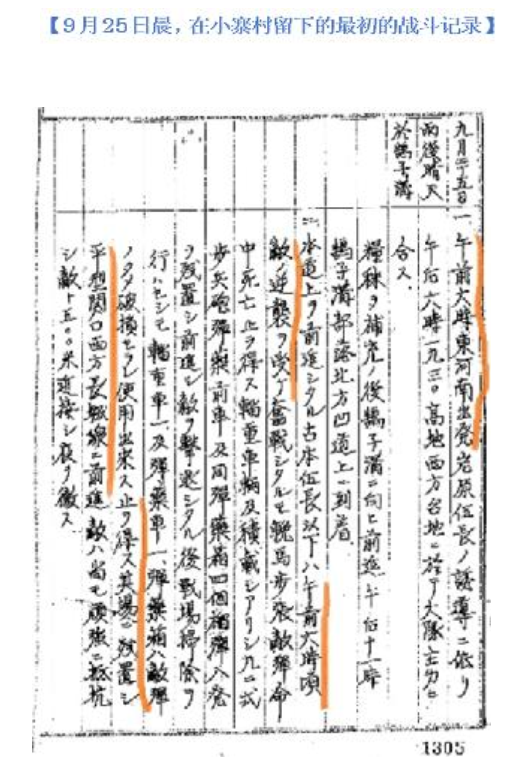 【9月25日晨，在小寨村留下的最初的战斗记录】
九月二十五日
雨後晴天
於鷂子溝
一 午前六時東河南出発岩原伍長ノ誘導ニ依リ
午后六時一九三〇高地西方台地ニ於テ大隊主力ニ
合ス
糧秣ヲ補充ノ後鷂子溝ニ向ヒ前進午后十一時
鷂子溝部落北方凹道上ニ到着
二 本道上ヲ前進シタル古本伍長以下ハ午前六時頃
敵ノ逆襲ヲ受ケ奮戦シタルモ輓馬敵弾命
中死亡止ヲ得ス輜重車輌及積載シアリシ九二式
歩兵砲弾薬前車及同弾薬箱四個榴弾八発
ヲ残置シ前進シ敵ヲ撃退シタル後戦場掃除ヲ
行ハセシモ輜重車一及弾薬車一弾薬箱ハ敵弾
ノタメ破損セラレ使用出来ス止ヲ得ス其場ニ放置シ
平型関口西方長城線ニ前進敵ハ尚モ頑強ニ抵抗
シ敵ト五〇〇米近接シ夜ヲ徹ス
1305